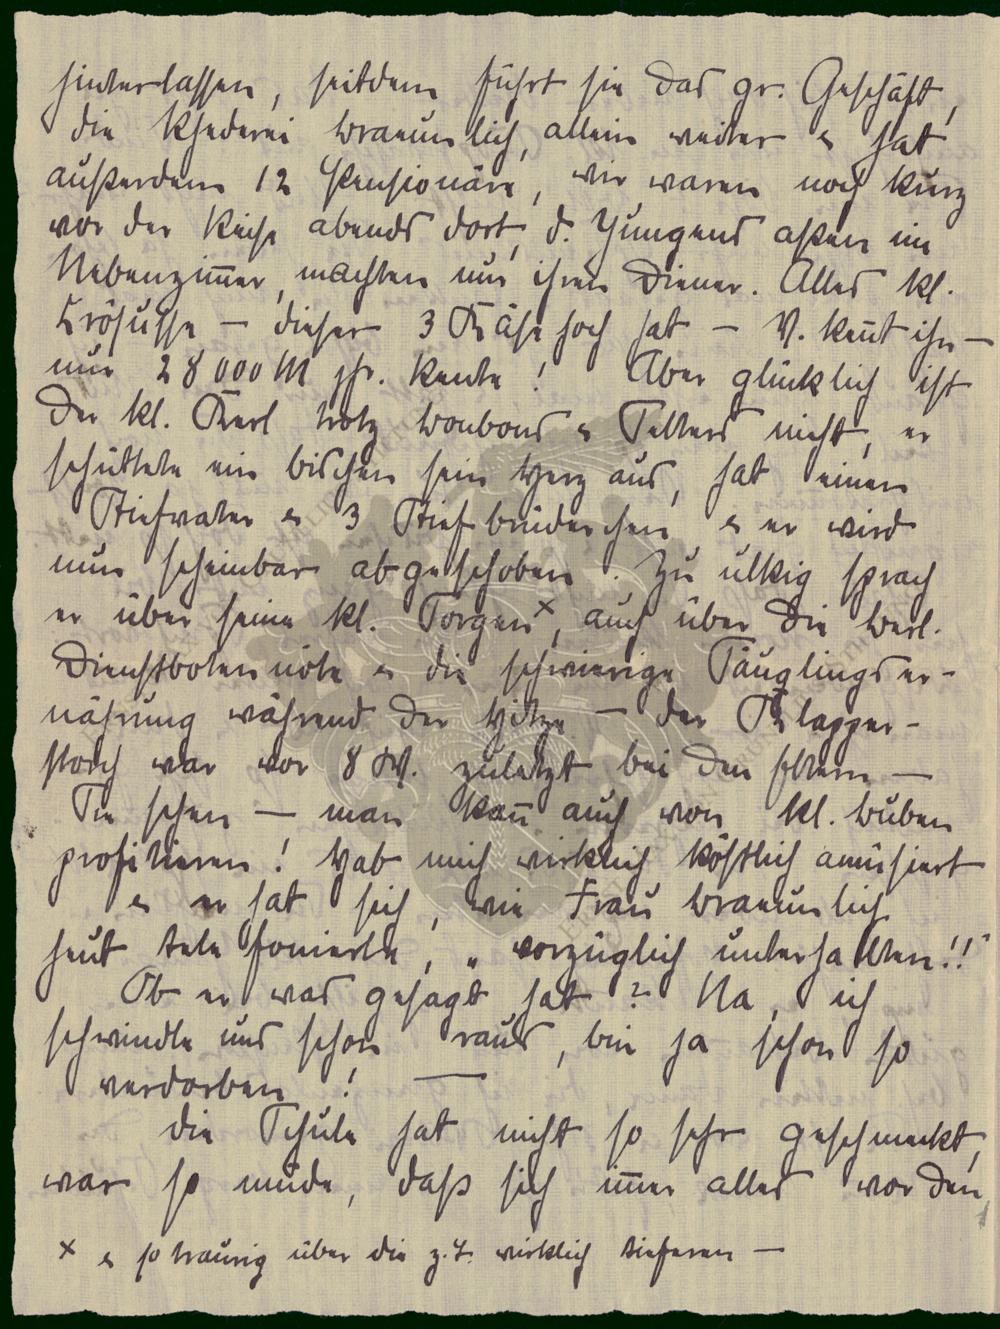 hinterlassen, seitdem führt sie das gr. Geschäft,
die Rhederei Braeunlich, allein weiter & hat
außerdem 12 Pensionäre, wir waren noch kurz
vor der Reise abends dort, d. Jungens aßen im
Nebenzim̅er, machten nur ihren Diener. Alles kl.
Krösusse — dieser 3 Käse hoch hat — V. ken̅t ihn —
nur 28000 M jhr. Rente! Aber glücklich ist
der kl. Kerl trotz Bonbons & Selters nicht, er
schüttete ein bischen sein Herz aus, hat einen
Stiefvater & 3 Stiefbrüderchen & er wird
nun scheinbar abgeschoben. Zu ulkig sprach
er über seine kl. Sorgen ×, auch über die Berl.
Dienstbotennöte & die schwierige Säuglingser-
nährung während der Hitze — der Klapper-
storch war vor 8 W. zuletzt bei den Eltern —
Sie sehen — man kan̅ auch von kl. Buben
profitieren! Hab mich wirklich köstlich amüsiert
& er hat sich, wie Frau Braeunlich
heut telefonierte, „vorzüglich unterhalten!!"
Ob er was gesagt hat? Na, ich
schwindle uns schon raus, bin ja schon so
verdorben! —
Die Schule hat nicht so sehr geschmeckt,
war so müde, daß sich im̅er alles vor den
× & so traurig über die z.T. wirklich tieferen —